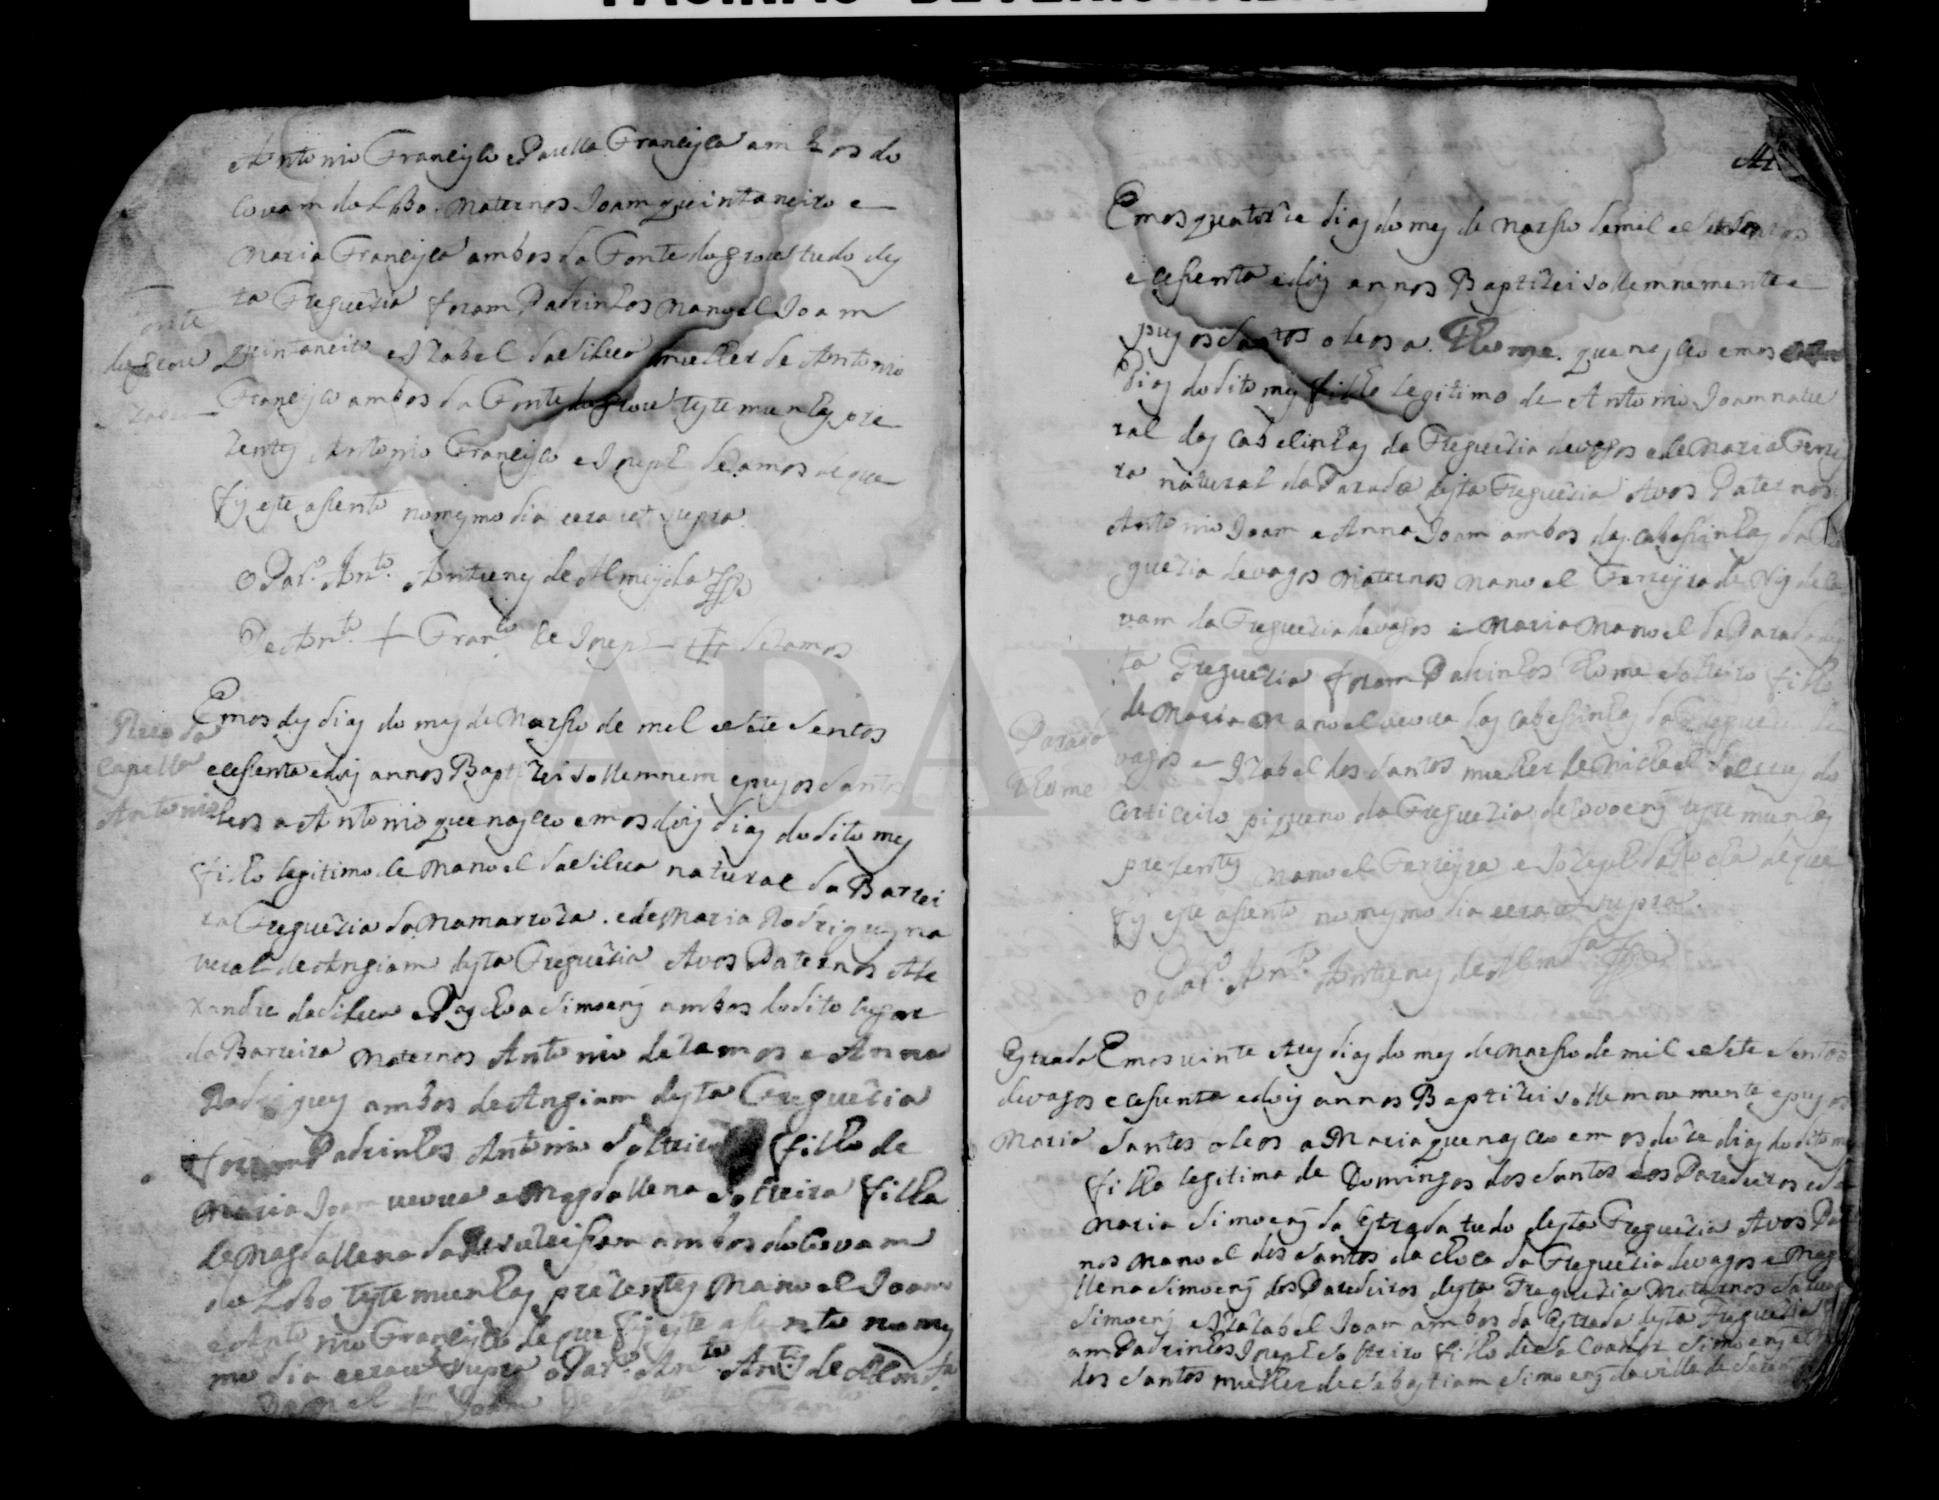 Antonio Francisco e Paulla Francisca ambos do
Covam do Lobo. Maternos Joam Quintaneiro e
Maria Francisca ambos da Fonte do grou tudo des
ta Freguezia foram Padrinhos Manoel Joam
Quintaneiro e Izabel da Silua mulher de Antonio
Francisco ambos da Fonte do Grou testemunhas pre
zentes Antonio Francisco e Joseph de Ramos de que
fis este asento no mesmo dia e era ut supra
O Par.^o Ant.^o Antunes de Almeyda
De Ant.^o + Fran.^co De Joseph + de Ramos
onte
do grou
Emos des dias do mes de Marsso de mil e sete sentos
e cesenta e dois annos Baptizei sollemnem e pus os santos
oleos a Antonio que nasceo emos dois dias do dito mes
filho legitimo de Manoel da Silua natural da Barrei
ra Freguezia da Mamarroza. e de Maria Rodrigues na
tural de Angiam desta Freguezia Avos Paternos Ale
xandre da Silua e Pascoa Simoens ambos do dito lugar
da Barreira Maternos Antonio de Ramos e Anna
Rodrigues ambos de Angiam desta Freguezia
foram Padrinhos Antonio Solteiro filho de
Maria Joam ueuua e Magdallena Solteira filha
de Magdallena da Resureisam ambos do Covam
do Lobo testemunhas prezentes Manoel Joam
e Antonio Francisco de que fis este asento no mes
mo dia e era ut supra o Par.^o Ant.^o Ant.^s de Almd.^a
Manoel + Joam De Ant.^o + Fran.^co
Capella
Antonio
Emos quatorze dias do mes de Marsso de mil e sete sentos
e cesenta e dois annos Baptizei sollemnemente e
pus os santos oleos a Thome. que nasceo emos
dias do dito mes filho legitimo de Antonio Joam natu
ral das Cabecinhas da Freguezia de Vagos e de Maria Ferrei
ra natural da Parada desta Freguezia Avos Paternos
Antonio Joam e Anna Joam ambos das Cabessinhas da Fre
guezia de Vagos Maternos Manoel Ferreyra de Ris de Ca
vam da Freguezia de Vagos e Maria Manoel da Parada des
ta Freguezia foram Padrinhos Thome Solteiro filho
de Maria Manoel ueuua das Cabessinhas da Freguezia de
Vagos e Izabel dos Santos mulher de Micael Dalruy do
Corticeiro piqueno da Freguezia de Covoens testemunhas
prezentes Manoel Ferreyra e Joseph da Rocha de que
fis este asento no mesmo dia e era ut supra.
O Par.^o Ant.^o Antunes de Almd.^a
Parada
Thome
Emos uinte e tres dias do mes de Marsso de mil e sete sentos
e cesenta e dois annos Baptizei sollemnemente e pus os
santos oleos a Maria que nasceo em os doze dias do dito mes
filha legitima de Domingos dos Santos dos Paredeiros e de
Maria Simoens da Estrada tudo desta Freguezia Avos Pater
nos Manoel dos Santos da Choca da Freguezia de Vagos e Magda
llena Simoens dos Paredeiros desta Freguezia Maternos
Simoens e Izabel Joam ambos da Estrada desta Freguezia
am Padrinhos Joseph Solteiro filho de Simoens e
dos Santos mulher de Sebastiam Simoens da uilla de
Estrada
de vagos
Maria
ADAVR